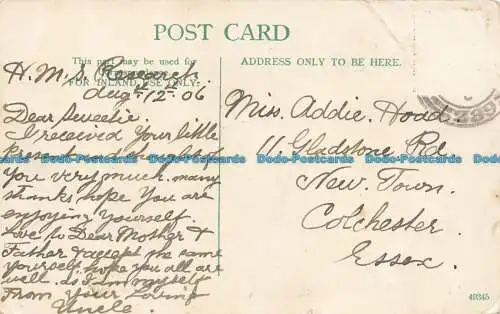 POST CARD
This part may be used for
FOR INLAND USE ONLY.
ADDRESS ONLY TO BE HERE.
H.M.S. Research
Aug 12th 06
Dear Sweetie.
I received your little
present and
you very much. many
thanks hope you are
enjoying yourself.
Love to Dear Mother &
Father & accept the same
yourself. hope you all are
well. as I am myself
From your Loving
Uncle.
Miss. Addie. Hoad.
11. Gladstone Rd
New. Town.
Colchester.
Essex.
Dodo-Postcards Dodo-Postcards Dodo-Postcards Dodo-Postcards Dodo-Postcards
40345